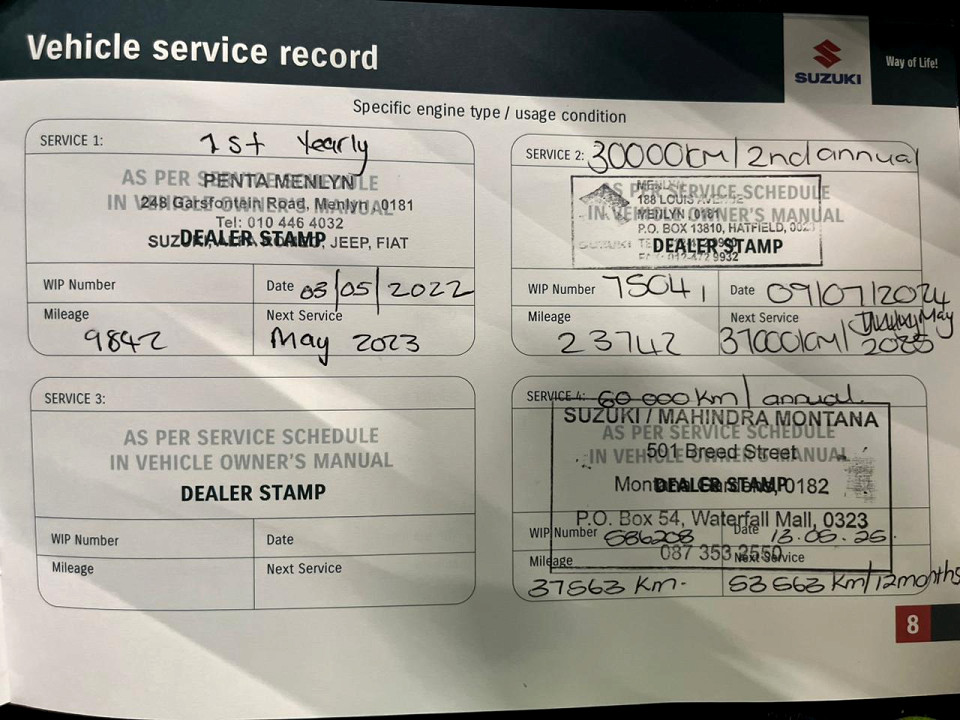 Vehicle service record
SUZUKI
Way of Life!
Specific engine type / usage condition
SERVICE 1: 1st Yearly
AS PER SERVICE SCHEDULE
IN VEHICLE OWNER'S MANUAL
DEALER STAMP
PENTA MENLYN
248 Garsfontein Road, Menlyn, 0181
Tel: 010 446 4032
SUZUKI, ALFA ROMEO, JEEP, FIAT
WIP Number
Date 03/05/2022
Mileage
9842
Next Service
May 2023
SERVICE 2: 30000KM/2nd annual
AS PER SERVICE SCHEDULE
IN VEHICLE OWNER'S MANUAL
DEALER STAMP
MENLYN
188 LOUIS
MENLYN 0181
P.O. BOX 13810, HATFIELD, 0028
SUZUKI
WIP Number 75041
Date 09/07/2024
Mileage
23742
Next Service
37000KM/ May
2025
SERVICE 3:
AS PER SERVICE SCHEDULE
IN VEHICLE OWNER'S MANUAL
DEALER STAMP
WIP Number
Date
Mileage
Next Service
SERVICE 4: 60 000 Km / annual.
AS PER SERVICE SCHEDULE
IN VEHICLE OWNER'S MANUAL
DEALER STAMP
SUZUKI / MAHINDRA MONTANA
501 Breed Street
Montana Gardens, 0182
P.O. Box 54, Waterfall Mall, 0323
087 353 2550
WIP Number 586208
Date 13.05.25.
Mileage
37563 Km.
Next Service
53 563 Km/12months
8